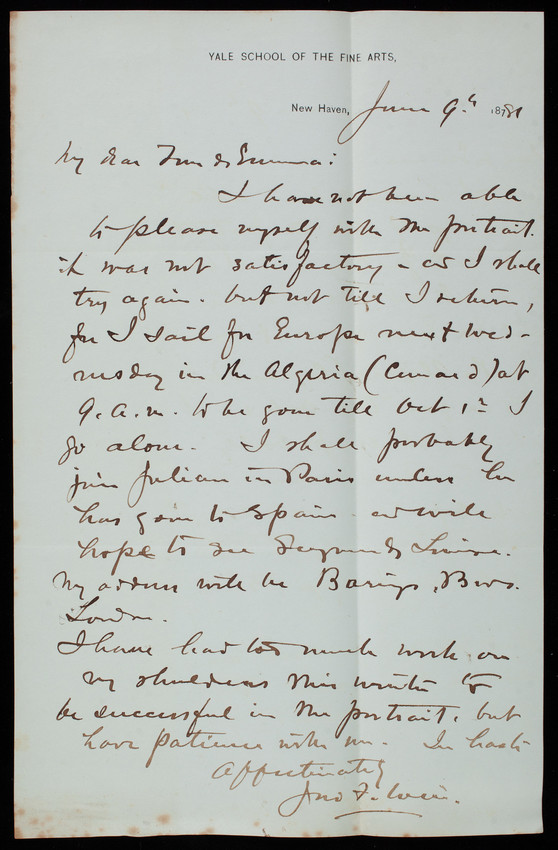 YALE SCHOOL OF THE FINE ARTS,
New Haven, June 9th 1881
My dear Tom & Emma:
I have not been able
to please myself with the portrait.
it was not satisfactory - and I shall
try again - but not till I return,
for I sail for Europe next Wed-
nesday in the Algeria (Cunard) at
9. a.m. to be gone till Oct 1st I
go alone. I shall probably
join Julian in Paris unless he
has gone to Spain - and will
hope to see Seymour & Louise.
My address will be Barings, Bros.
London.
I have had too much work on
my shoulders this winter to
be successful in the portrait, but
have patience with me. In haste
Affectionately
Jno F. Weir.